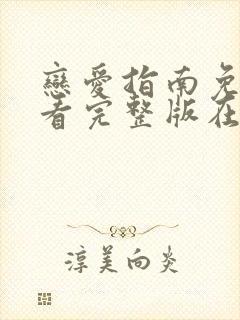 戀愛指南免
看完整版在
淳美向炎